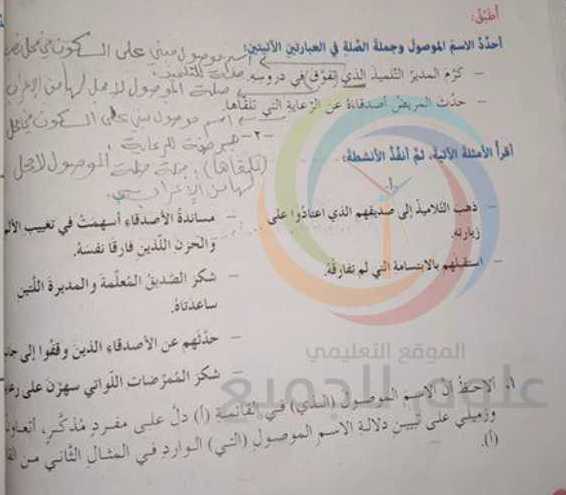 أطبّق:
أحدّدُ الاسمَ الموصولَ وجملةَ الصّلة في العبارتينِ الآتيتينِ:
اسم موصول مبني على السكون في محل نصب
– كرّمَ المديرُ التلميذَ الذي تفوّقَ في دروسِه.
صفة للتلميذ.
صلة الموصول لا محل لها من الإعراب
– حدّثَ المريضُ أصدقاءَهُ عن الرّعايةِ التي تلقّاها.
اسم موصول مبني على السكون في محل
صفة للرعاية
-٢-
(تلقاها): جملة صلة الموصول لا محل
لها من الإعراب
أقرأُ الأمثلةَ الآتيةَ، ثمّ أنفّذُ الأنشطةَ:
-أ-
– ذهبَ التلاميذُ إلى صديقِهم الذي اعتادُوا على
زيارتِه.
– استقبلَهم بالابتسامةِ التي لم تفارقْهُ.
– مساندةُ الأصدقاءِ أسهمَتْ في تغييبِ
والحزنِ اللّذينِ فارقا نفسَهُ.
– شكرَ الصّديقُ المُعلّمةَ والمديرةَ اللّتينِ
ساعدتاهُ.
– حدّثَهم عن الأصدقاءِ الذينَ وقفُوا إلى
– شكرَ المُمرّضاتِ اللّواتي سهرْنَ على
الموقع التعليمي
علوم للجميع
١. ألاحظُ أنّ الاسمَ الموصولَ (الذي) في القائمةِ (أ) دلَّ على مفردٍ مُذكّرٍ،
وزميلي على تبيينِ دلالةِ الاسمِ الموصولِ (التي) الواردِ في المثالِ الثّاني من
(أ).